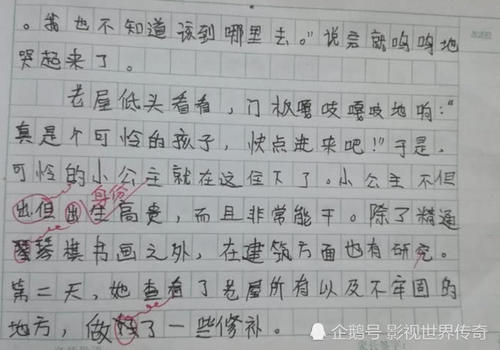 。我也不知道该到哪里去。”说完就呜呜地
哭起来了。
老屋低头看看，门板嘎吱嘎吱地响：“
真是个可怜的孩子，快点进来吧！”于是，
可怜的小公主就在这住下了。小公主不但
身份
出但出生高贵，而且非常能干。除了精通
琴棋书画之外，在建筑方面也有研究。
第二天，她查看了老屋所有以及不牢固的
地方，做了一些修补。
企鹅号 影视世界传奇